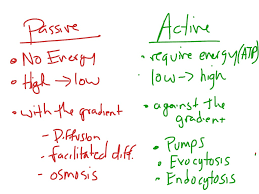 Passive
• No Energy
• High → low
• with the gradient
- Diffusion
- facilitated diff.
- osmosis
Active
• require energy (ATP)
low -> high
• against the gradient
• Pumps
• Exocytosis
• Endocytosis